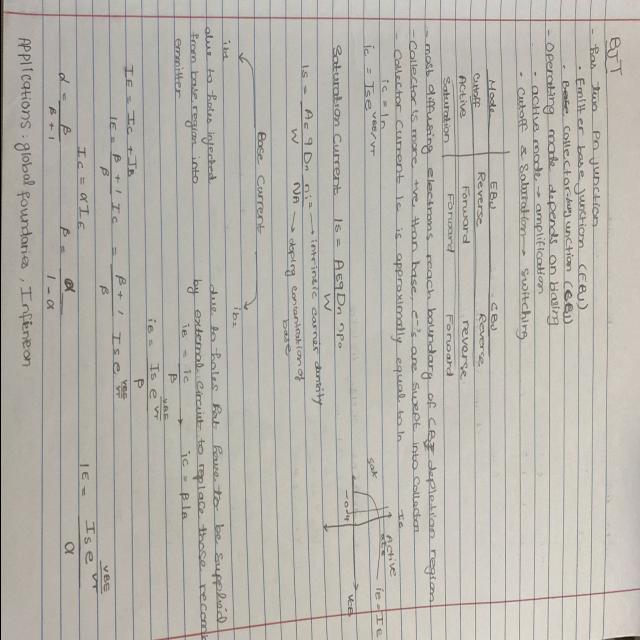 BJT
- Has two Pn junction
• Emitter base junction (EBJ)
• Base collector junction (CBJ)
- Operating mode depends on biasing
• active mode → amplification
• Cutoff & Saturation → switching
Mode EBJ CBJ
Cutoff Reverse Reverse
Active Forward reverse
Saturation Forward Forward
- most diffusing electrons reach boundary of CBJ depletion region
- Collector is more +ve than base, e-'s are swept into collector
- Collector Current Ic is approximally equal to In
ic = In
ic = Is e^VBE/VT
Ic
Active
sat
iE = IE
-0.4
VCB
Saturation Current Is = AE q Dn npo / W
Is = AE q Dn ni² / W NA
→ intrinsic carrier density
→ doping concentration of base
Base Current
ib1 ib2
due to holes injected from base region into emitter
due to holes that have to be supplied by external circuit to replace those recomb
iB = ic / β → ic = β iB
iB = Is e^VBE/VT / β
IE = Ic + IB
IE = β + 1 / β Ic = β + 1 / β Is e^VBE/VT
Ic = α IE IE = Is e^VBE/VT / α
α = β / β + 1 β = α / 1 - α
Applications: global foundaries, Infineon